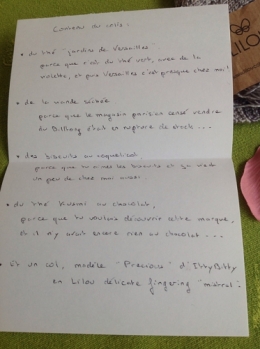 Contenu du colis :
• du thé "jardins de Versailles"
parce que c'est du thé vert, avec de la
violette, et puis Versailles c'est presque chez moi !
• de la viande séchée
parce que le magasin parisien censé vendre
du Biltong était en rupture de stock...
• des biscuits au roquefort
parce que tu aimes les biscuits et ça vient
un peu de chez moi aussi
• du thé Kusmi au chocolat,
parce que tu voulais découvrir cette marque,
et il n'y avait encore rien au chocolat...
• et un col, modèle "Precious" d'IttyBitty
en Lilou délicate fingering "mistral".
LILOU